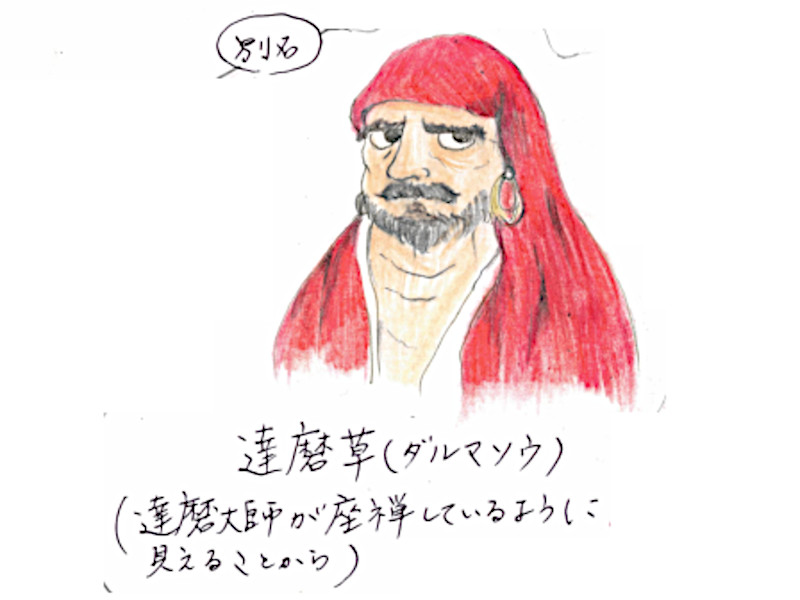 別名
達磨草(ダルマソウ)
(達磨大師が座禅しているように
見えることから)